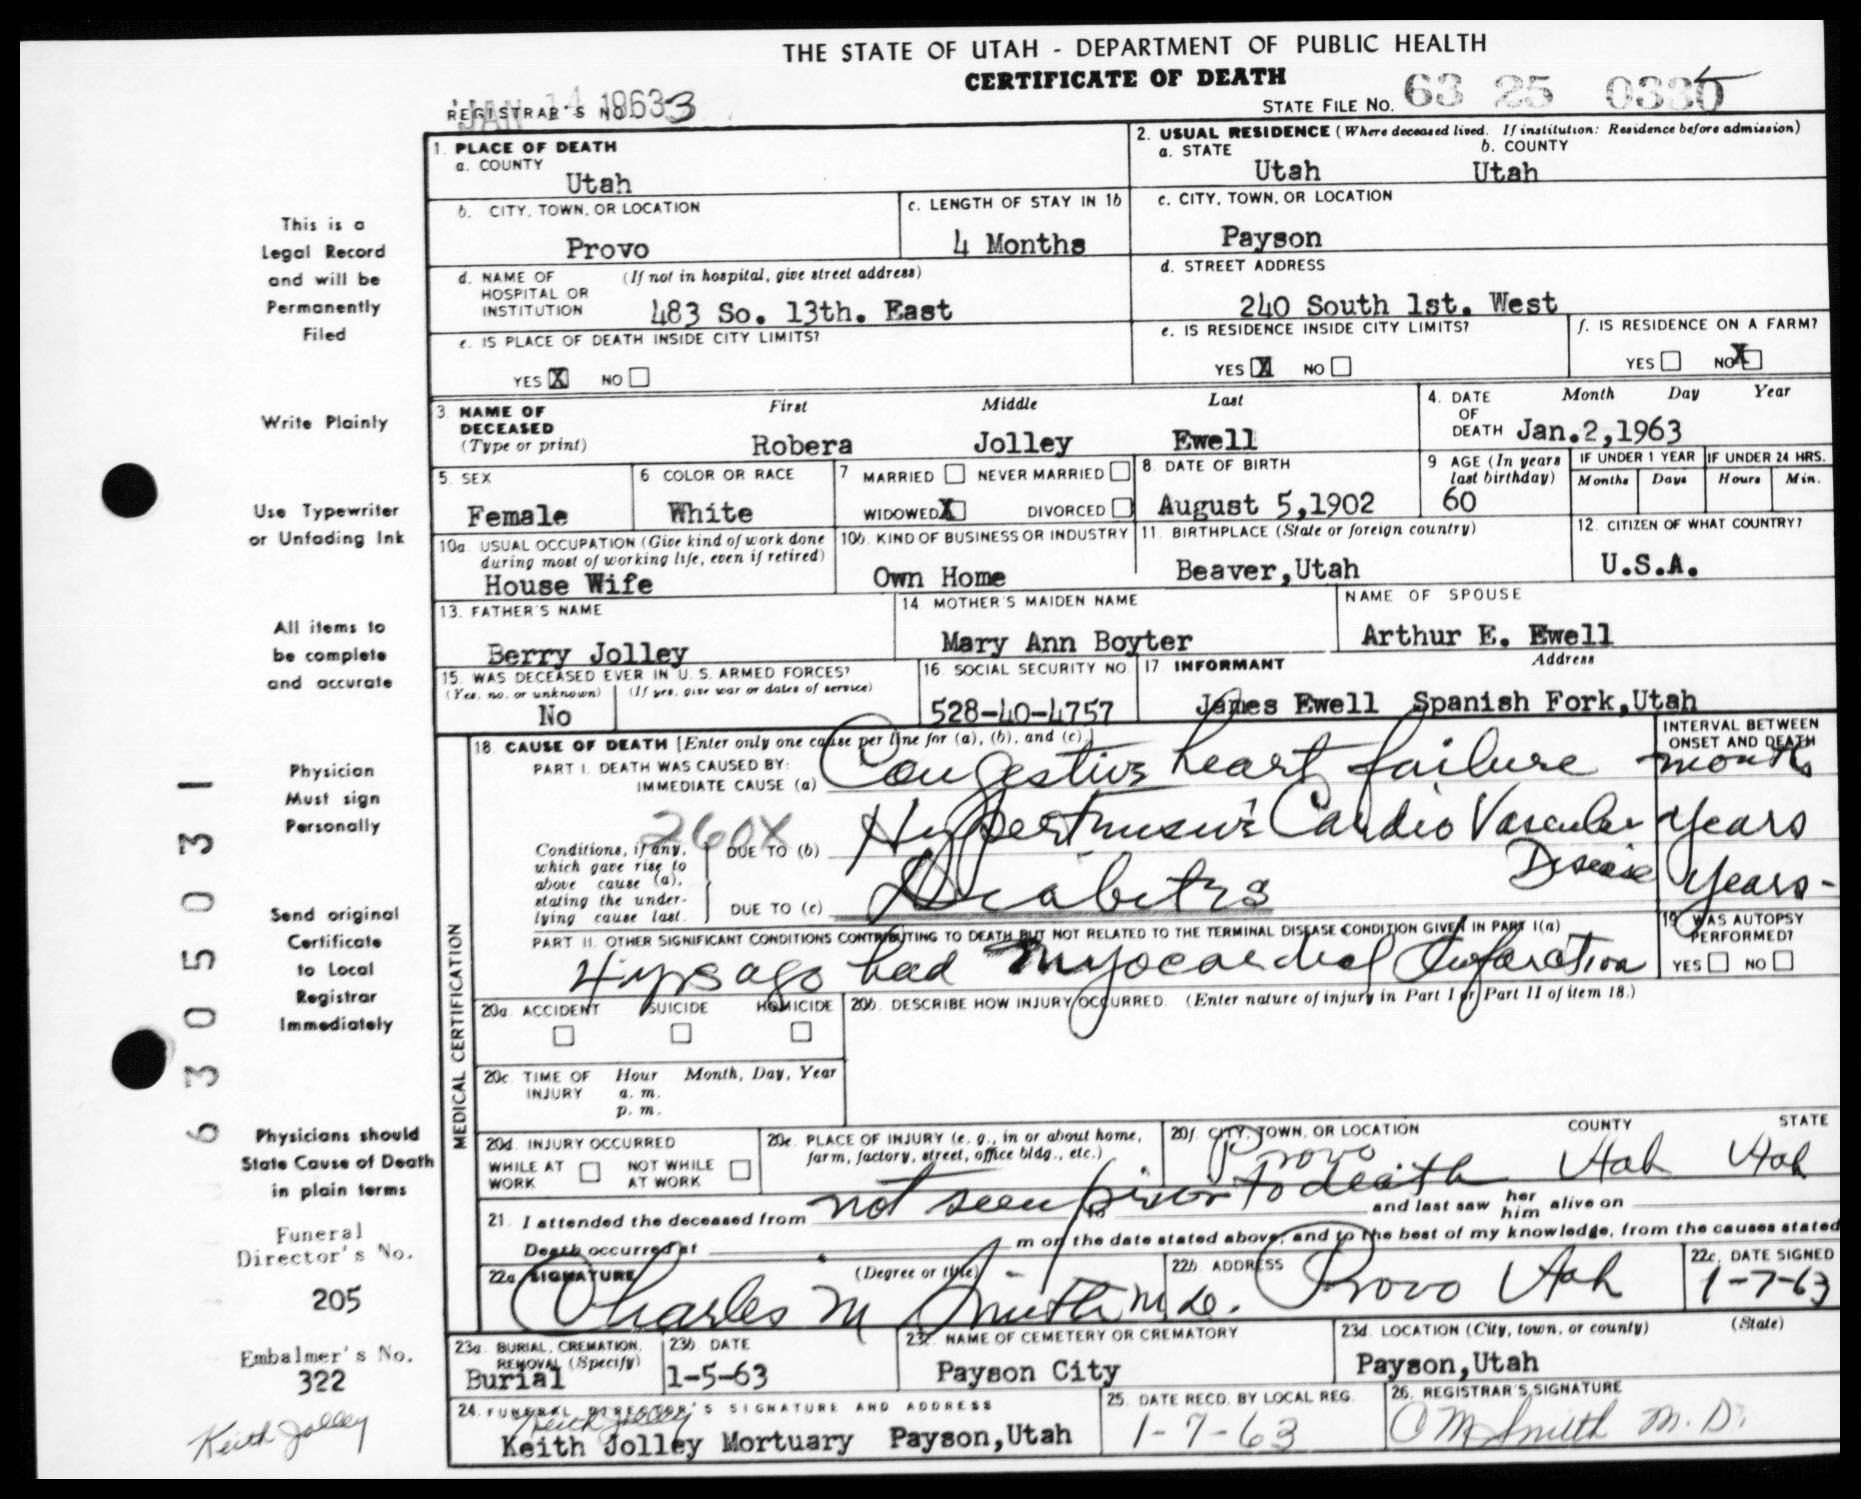 THE STATE OF UTAH - DEPARTMENT OF PUBLIC HEALTH
CERTIFICATE OF DEATH
JAN 14 1963
REGISTRAR'S NO. 3
STATE FILE NO. 63 25 0335
1. PLACE OF DEATH
a. COUNTY
Utah
2. USUAL RESIDENCE (Where deceased lived. If institution: Residence before admission)
a. STATE
b. COUNTY
Utah Utah
b. CITY, TOWN, OR LOCATION
Provo
c. LENGTH OF STAY IN 1b
4 Months
c. CITY, TOWN, OR LOCATION
Payson
d. NAME OF HOSPITAL OR INSTITUTION
(If not in hospital, give street address)
483 So. 13th. East
d. STREET ADDRESS
240 South 1st. West
e. IS PLACE OF DEATH INSIDE CITY LIMITS?
YES X NO
e. IS RESIDENCE INSIDE CITY LIMITS?
YES X NO
f. IS RESIDENCE ON A FARM?
YES NO X
3. NAME OF DECEASED
(Type or print)
First Middle Last
Robera Jolley Ewell
4. DATE OF DEATH
Month Day Year
Jan.2,1963
5. SEX
Female
6 COLOR OR RACE
White
7 MARRIED NEVER MARRIED
WIDOWED X DIVORCED
8. DATE OF BIRTH
August 5,1902
9 AGE (In years last birthday)
60
IF UNDER 1 YEAR
Months Days
IF UNDER 24 HRS.
Hours Min.
10a. USUAL OCCUPATION (Give kind of work done during most of working life, even if retired)
House Wife
10b. KIND OF BUSINESS OR INDUSTRY
Own Home
11. BIRTHPLACE (State or foreign country)
Beaver,Utah
12. CITIZEN OF WHAT COUNTRY?
U.S.A.
13. FATHER'S NAME
Berry Jolley
14. MOTHER'S MAIDEN NAME
Mary Ann Boyter
NAME OF SPOUSE
Arthur E. Ewell
15. WAS DECEASED EVER IN U. S. ARMED FORCES?
(Yes, no, or unknown) (If yes, give war or dates of service)
No
16. SOCIAL SECURITY NO.
528-40-4757
17. INFORMANT Address
James Ewell Spanish Fork,Utah
MEDICAL CERTIFICATION
18. CAUSE OF DEATH [Enter only one cause per line for (a), (b), and (c).]
INTERVAL BETWEEN ONSET AND DEATH
PART I. DEATH WAS CAUSED BY:
IMMEDIATE CAUSE (a) Congestive heart failure months
260X
Conditions, if any, which gave rise to above cause (a), stating the underlying cause last.
DUE TO (b) Hypertensive Cardio Vascular Disease years
DUE TO (c) Diabetes years-
PART II. OTHER SIGNIFICANT CONDITIONS CONTRIBUTING TO DEATH BUT NOT RELATED TO THE TERMINAL DISEASE CONDITION GIVEN IN PART I(a)
4 yrs ago had myocardial Infarction
19. WAS AUTOPSY PERFORMED?
YES NO
20a. ACCIDENT SUICIDE HOMICIDE
20b. DESCRIBE HOW INJURY OCCURRED. (Enter nature of injury in Part I or Part II of item 18.)
20c. TIME OF INJURY
Hour Month, Day, Year
a. m.
p. m.
20d. INJURY OCCURRED
WHILE AT WORK NOT WHILE AT WORK
20e. PLACE OF INJURY (e. g., in or about home, farm, factory, street, office bldg., etc.)
20f. CITY, TOWN, OR LOCATION COUNTY STATE
Provo Utah Utah
21. I attended the deceased from not seen prior to death to and last saw her him alive on
Death occurred at m on the date stated above, and to the best of my knowledge, from the causes stated
22a. SIGNATURE (Degree or title)
Charles M Smith M.D.
22b. ADDRESS
Provo Utah
22c. DATE SIGNED
1-7-63
23a. BURIAL, CREMATION, REMOVAL (Specify)
Burial
23b. DATE
1-5-63
23c. NAME OF CEMETERY OR CREMATORY
Payson City
23d. LOCATION (City, town, or county) (State)
Payson,Utah
24. FUNERAL DIRECTOR'S SIGNATURE AND ADDRESS
Keith Jolley
Keith Jolley Mortuary Payson,Utah
25. DATE RECD. BY LOCAL REG.
1-7-63
26. REGISTRAR'S SIGNATURE
O M Smith M.D.
This is a
Legal Record
and will be
Permanently
Filed
Write Plainly
Use Typewriter
or Unfading Ink
All items to
be complete
and accurate
Physician
Must sign
Personally
Send original
Certificate
to Local
Registrar
Immediately
Physicians should
State Cause of Death
in plain terms
Funeral
Director's No.
205
Embalmer's No.
322
Keith Jolley
6305031